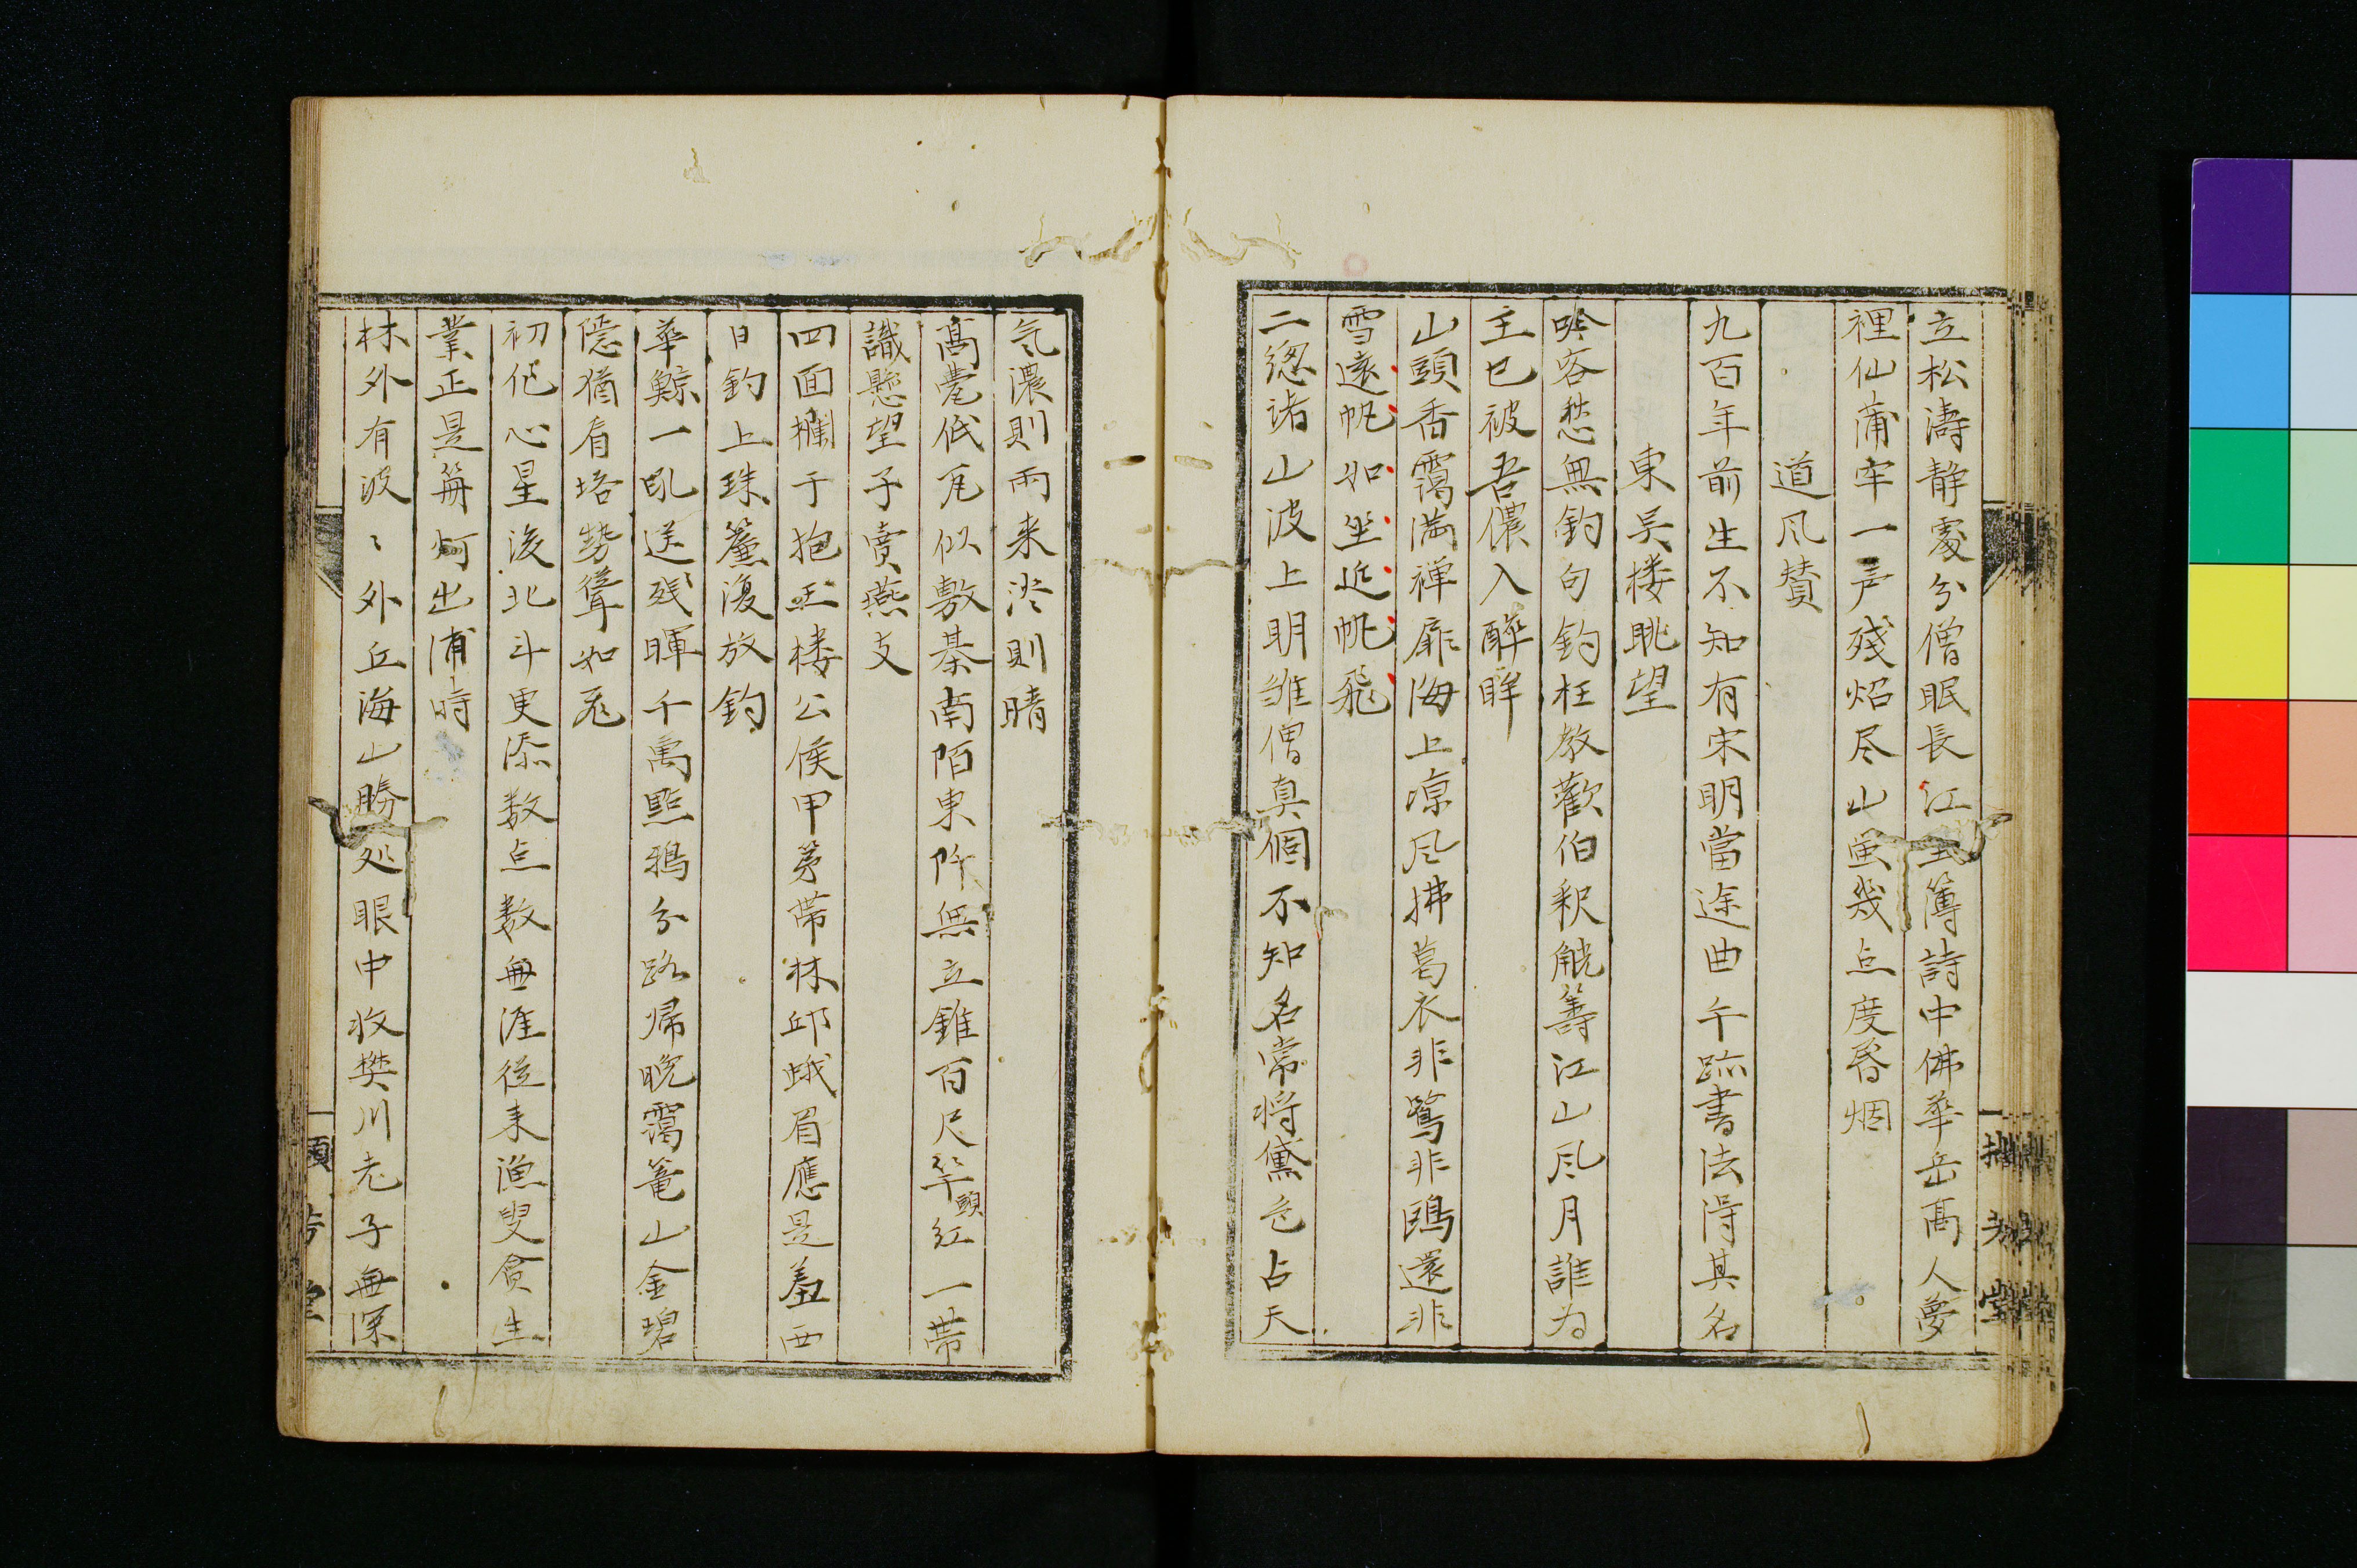 立松濤静處分僧眠長江䒭簿詩中佛華岳髙人夢
裡仙蒲牢一声残炤尽山萤幾点度昏烟
道风賛
九百年前生不知有宋明當途曲午跡書法得其名
東吴楼眺望
吟客愁無釣句釣枉教歡伯釈觥籌江山风月誰为
主已被吾儂入醉眸
山頭香靄満禅扉海上凉风拂葛衣非鷺非鴎還非
雪遠帆如坐近帆飛
二總諸山波上明雏僧真個不知名常将黛色占天
气濃則雨来淡則晴
髙甍低瓦似敷棊南陌東阡無立錐百尺竿頭紅一帶
識懸望子賣燕支
四面欄干抱玉楼公侯甲第帶林邱蛾眉應是羞西
日釣上珠簾復放釣
華鯨一吼送残暉千萬點鴉分路帰晩靄篭山金碧
隠猶看塔勢聳如飛
初侘心星後北斗更添数点数無涯従来漁叟貪生
業正是篝灯出浦時
林外有波〻外丘海山勝処眼中收樊川老子無深